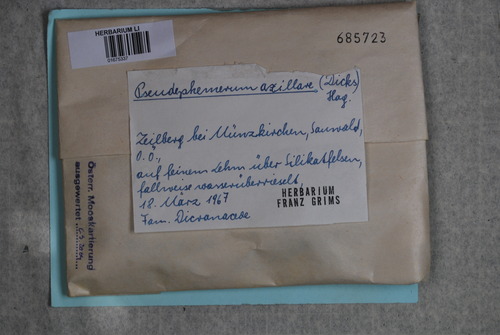 HERBARIUM LI
01675337
685723
Pseudephemerum axillare (Dicks)
Hag.
Zeilberg bei Münzkirchen, Sauwald,
O.Ö.,
auf feinem Lehm über Silikatfelsen,
fallweise wasserüberrieselt,
18. März 1967
Fam. Dicranaceae
HERBARIUM
FRANZ GRIMS
Österr. Mooskartierung
ausgewertet